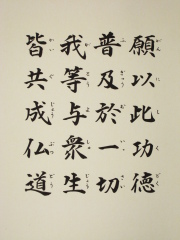 願以此功徳
普及於一切
我等与衆生
皆共成仏道